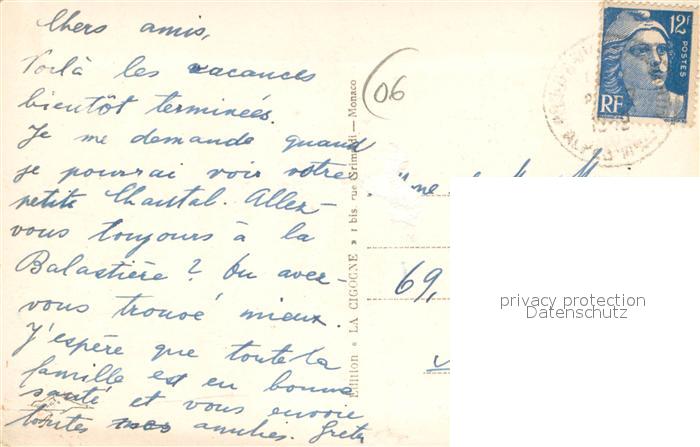 Chers amis,
Voilà les vacances
bientôt terminées.
Je me demande quand
je pourrai voir votre
petite Chantal. Allez-
vous toujours à la
Balastière ? Ou avez-
vous trouvé mieux.
J'espère que toute la
famille est en bonne
santé et vous envoie
toutes mes amitiés. Greta
(06
Edition « LA CIGOGNE » 1 bis, rue Grimaldi — Monaco
12F
POSTES
RF
69,
privacy protection
Datenschutz